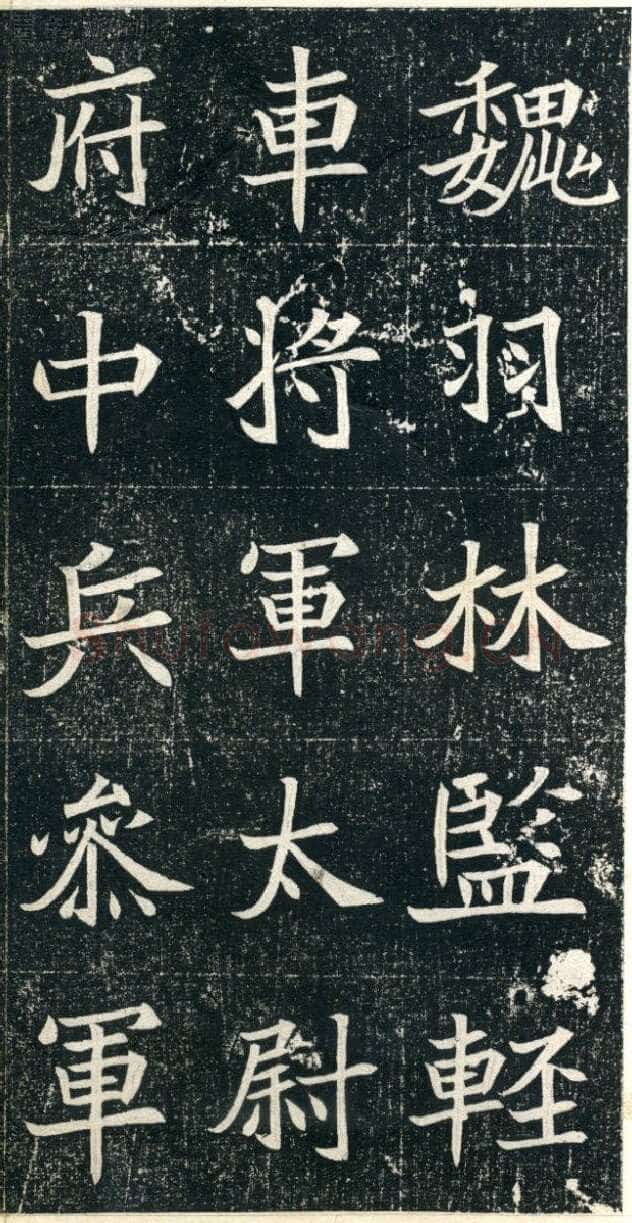 魏羽林監軽
車将軍太尉
府中兵叅軍